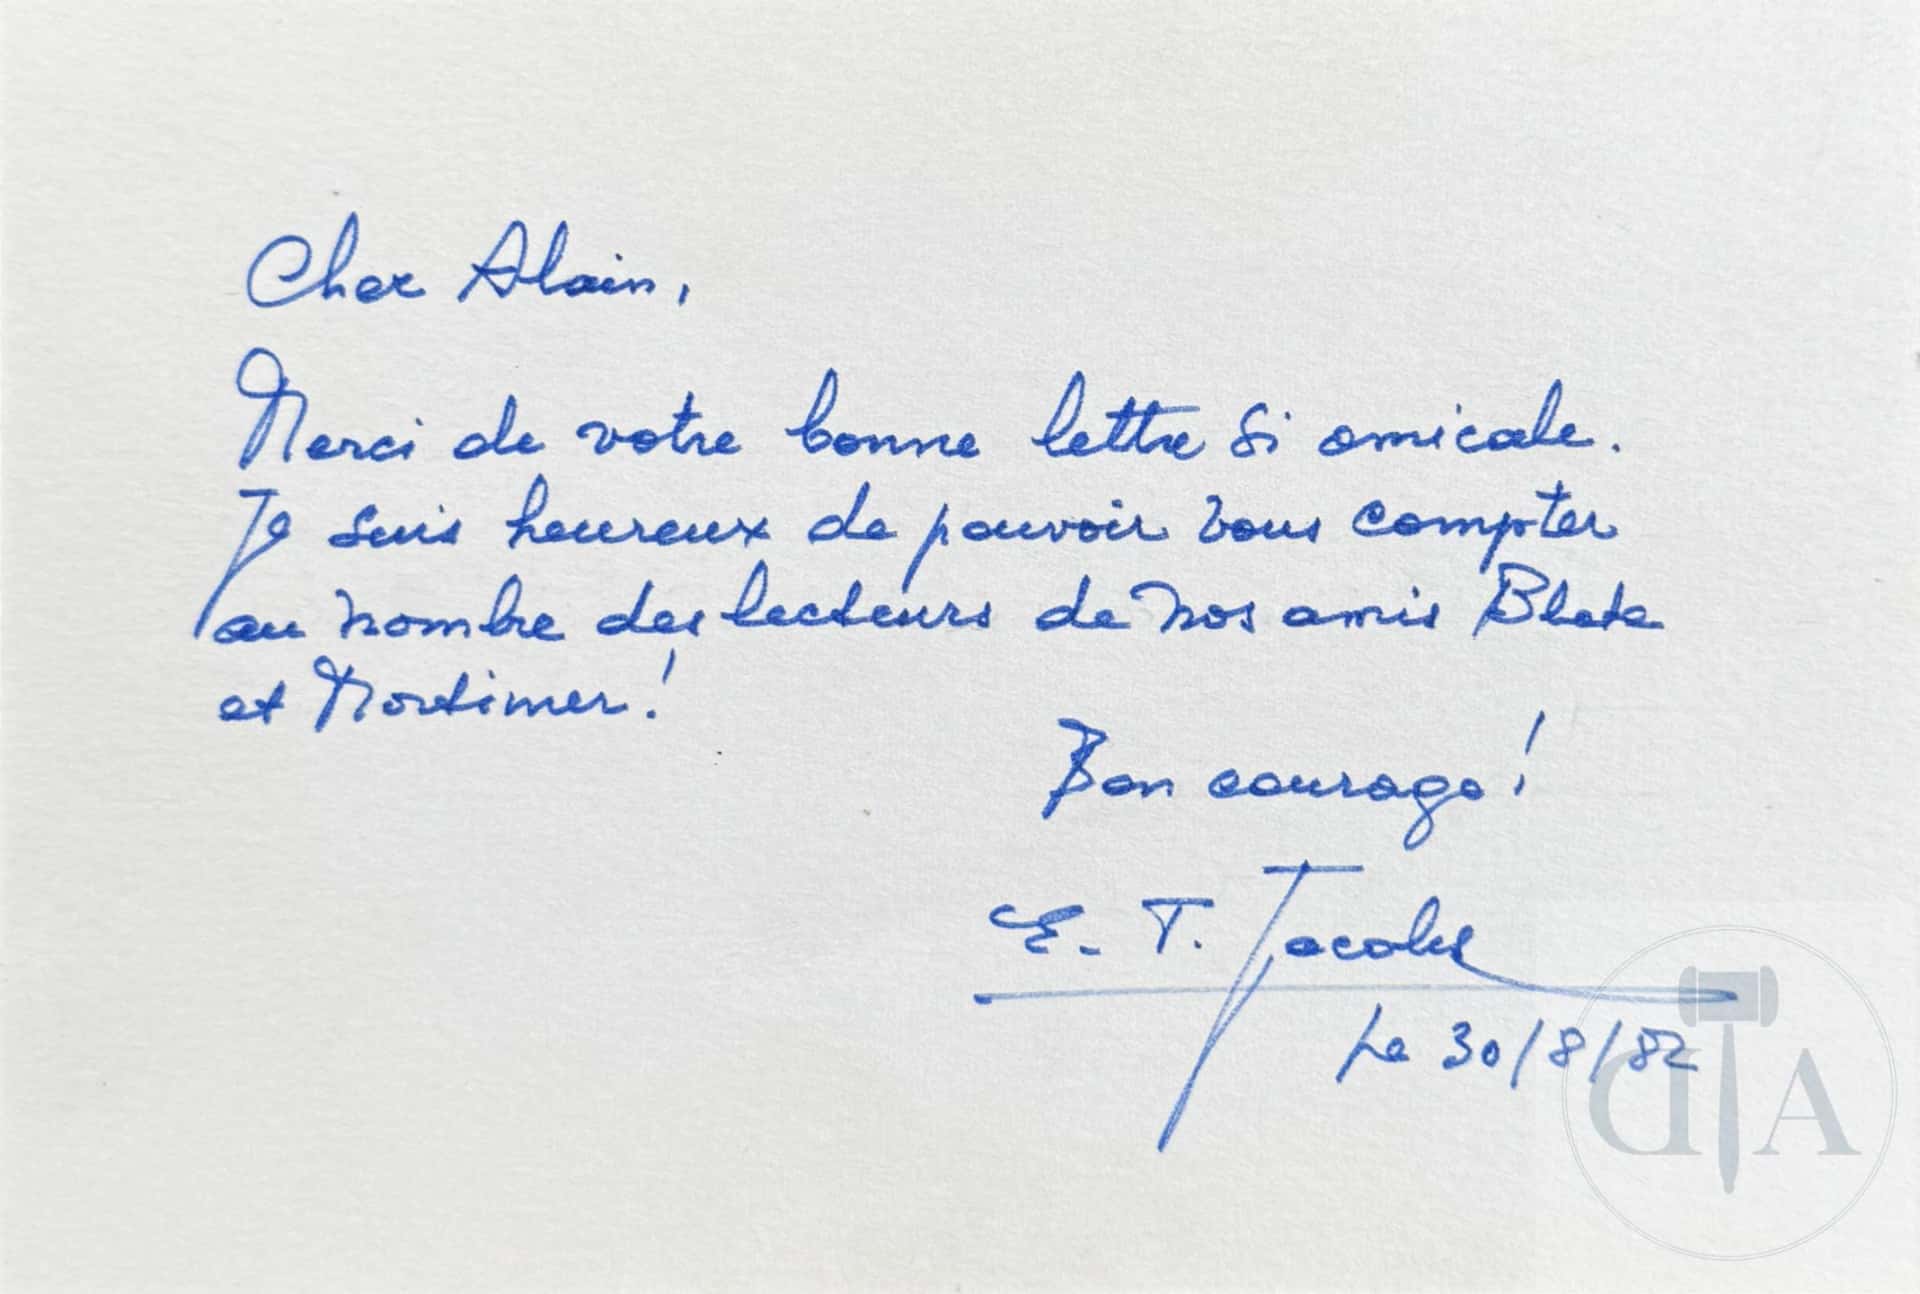 Cher Alain,
Merci de votre bonne lettre si amicale.
Je suis heureux de pouvoir vous compter
au nombre des lecteurs de nos amis Blake
et Mortimer!
Bon courage!
E. T. Jacobs
Le 30/8/82
DA